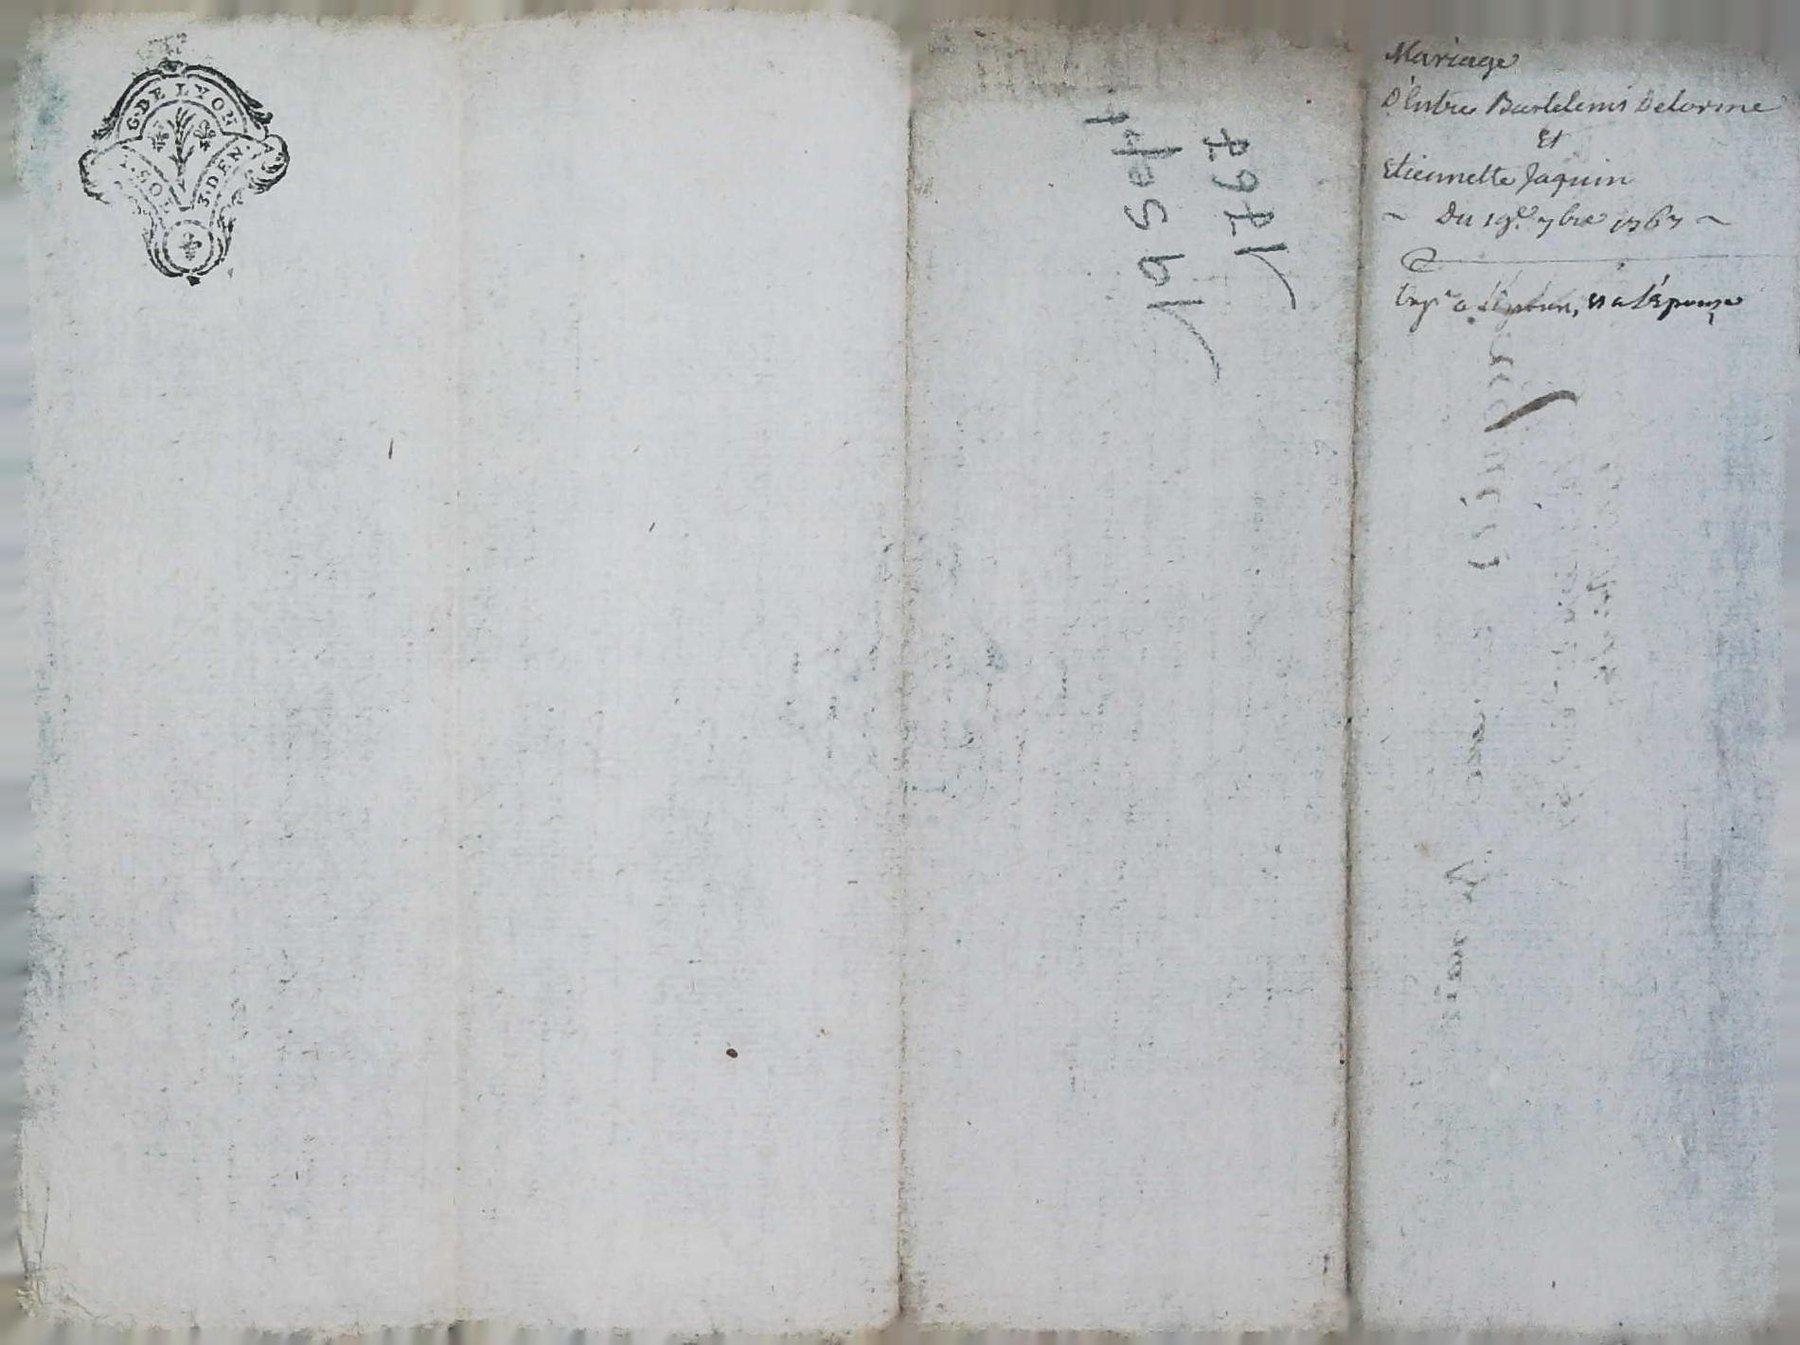 G. DE LYON
I. SOL
3. DEN.
19 Sept
1767
Mariage
D'Entre Bartelemi Delorme
Et
Etiennette Jaquin
~ Du 19e. 7bre 1767 ~
Expn a L'Epoux, et a L'Epouse